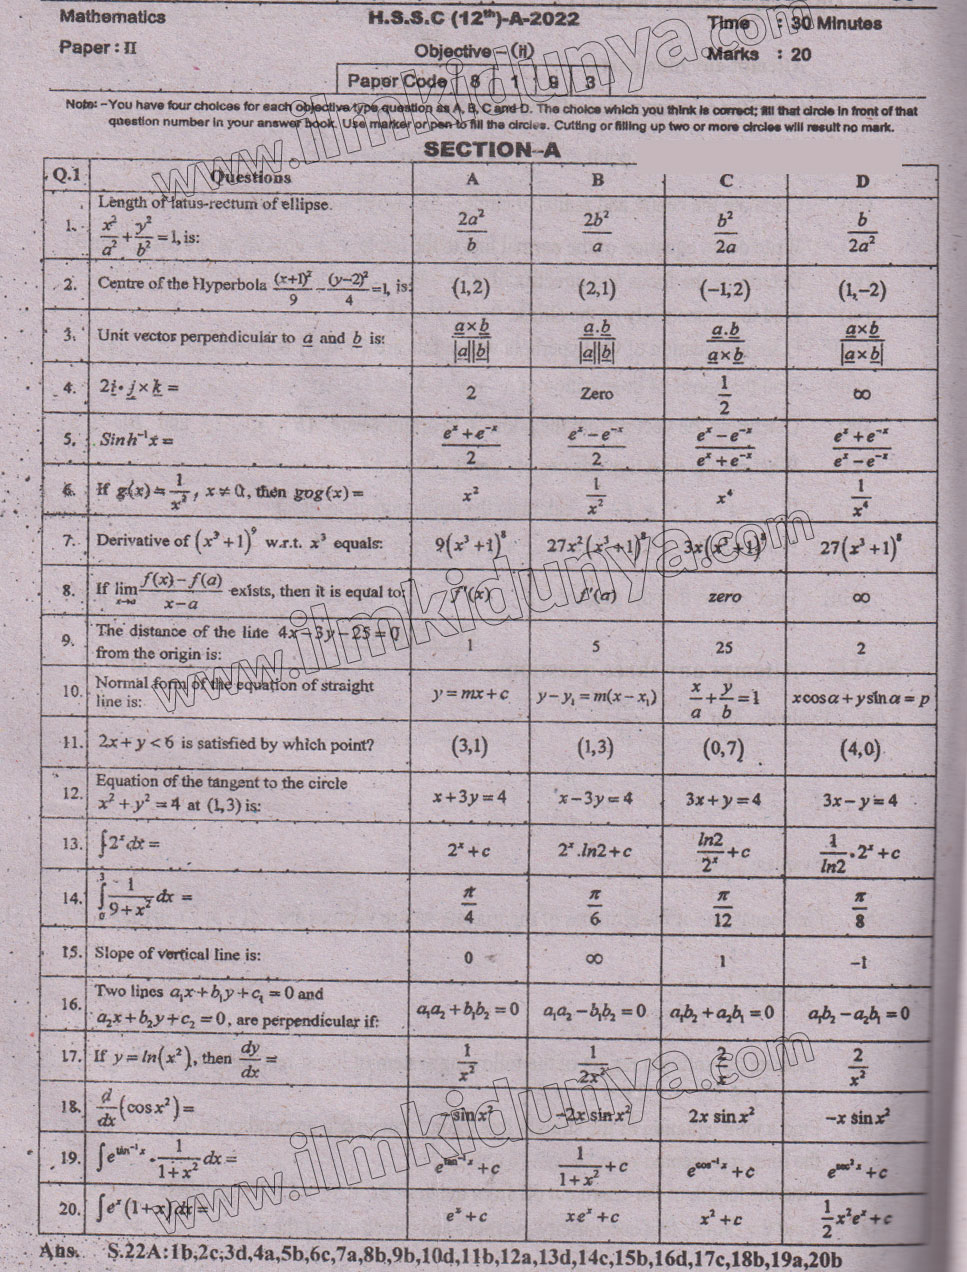 Mathematics
H.S.S.C (12th)-A-2022
Time : 30 Minutes
Paper : II
Objective - (ii)
Marks : 20
Paper Code 8 1 9 3
Note: -You have four choices for each objective type question as A, B, C and D. The choice which you think is correct; fill that circle in front of that
question number in your answer book. Use marker or pen to fill the circles. Cutting or filling up two or more circles will result no mark.
SECTION-A
Q.1 Questions A B C D
1. Length of latus-rectum of ellipse.
x²/a² + y²/b² = 1, is: 2a²/b 2b²/a b²/2a b/2a²
2. Centre of the Hyperbola (x+1)²/9 - (y-2)²/4 = 1, is: (1,2) (2,1) (-1,2) (1,-2)
3. Unit vector perpendicular to a and b is: a×b/|a||b| a.b/|a||b| a.b/a×b a×b/|a×b|
4. 2i • j × k = 2 Zero 1/2 ∞
5. Sinh⁻¹x = (eˣ+e⁻ˣ)/2 (eˣ-e⁻ˣ)/2 (eˣ-e⁻ˣ)/(eˣ+e⁻ˣ) (eˣ+e⁻ˣ)/(eˣ-e⁻ˣ)
6. If g(x) = 1/x², x ≠ 0, then gog(x) = x² 1/x² x⁴ 1/x⁴
7. Derivative of (x³+1)⁹ w.r.t. x³ equals: 9(x³+1)⁸ 27x²(x³+1)⁸ 3x(x³+1)⁸ 27(x³+1)⁸
8. If lim x→a (f(x)-f(a))/(x-a) exists, then it is equal to: f'(x) f'(a) zero ∞
9. The distance of the line 4x-3y-25=0
from the origin is: 1 5 25 2
10. Normal form of the equation of straight
line is: y=mx+c y-y₁=m(x-x₁) x/a + y/b = 1 xcosα+ysinα=p
11. 2x+y<6 is satisfied by which point? (3,1) (1,3) (0,7) (4,0)
12. Equation of the tangent to the circle
x²+y²=4 at (1,3) is: x+3y=4 x-3y=4 3x+y=4 3x-y=4
13. ∫2ˣdx = 2ˣ+c 2ˣ.ln2+c ln2/2ˣ+c 1/ln2•2ˣ+c
14. ∫₀³ 1/(9+x²) dx = π/4 π/6 π/12 π/8
15. Slope of vertical line is: 0 ∞ 1 -1
16. Two lines a₁x+b₁y+c₁=0 and
a₂x+b₂y+c₂=0, are perpendicular if: a₁a₂+b₁b₂=0 a₁a₂-b₁b₂=0 a₁b₂+a₂b₁=0 a₁b₂-a₂b₁=0
17. If y=ln(x²), then dy/dx = 1/x² 1/2x² 2/x 2/x²
18. d/dx(cosx²)= -sinx² -2x sinx² 2x sinx² -x sinx²
19. ∫e^(tan⁻¹x)•1/(1+x²) dx= e^(tan⁻¹x)+c 1/(1+x²)+c e^(cos⁻¹x)+c e^(sec²x)+c
20. ∫eˣ(1+x)dx= eˣ+c xeˣ+c x²+c 1/2x²eˣ+c
Ans. S.22A:1b,2c,3d,4a,5b,6c,7a,8b,9b,10d,11b,12a,13d,14c,15b,16d,17c,18b,19a,20b
www.ilmkidunya.com
www.ilmkidunya.com
www.ilmkidunya.com